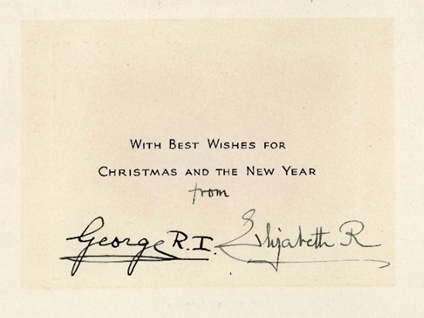 WITH BEST WISHES FOR
CHRISTMAS AND THE NEW YEAR
from
George R.I. Elizabeth R